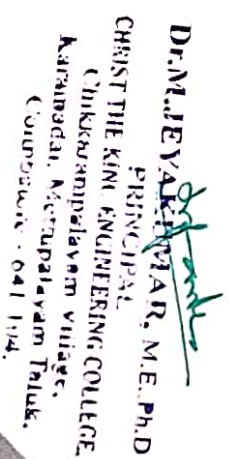 Dr.M.JEYAKUMAR, M.E.,Ph.D
PRINCIPAL
CHRIST THE KING ENGINEERING COLLEGE,
Chikkarampalayam village,
Karamadai, Mettupalayam Taluk,
Coimbatore - 641 104.